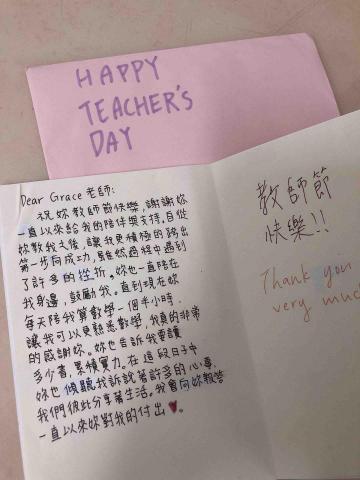 HAPPY
TEACHER'S
DAY
Dear Grace老師:
祝妳教師節快樂,謝謝妳
一直以來給我的陪伴與支持。自從
妳教我之後,讓我更積極的踏出
第一步向成功,雖然過程中遇到
了許多的挫折。妳也一直陪在
我身邊,鼓勵我。直到現在妳
每天陪我算數學一個半小時,
讓我可以更熟悉數學,我真的非常
的感謝妳。妳也告訴我要讀
多少書,累積實力。在這段日子中
妳也傾聽我訴說著許多的心事,
我們彼此分享著生活。我會向妳報答
一直以來妳對我的付出♥。
教師節
快樂!!
Thank you
very much